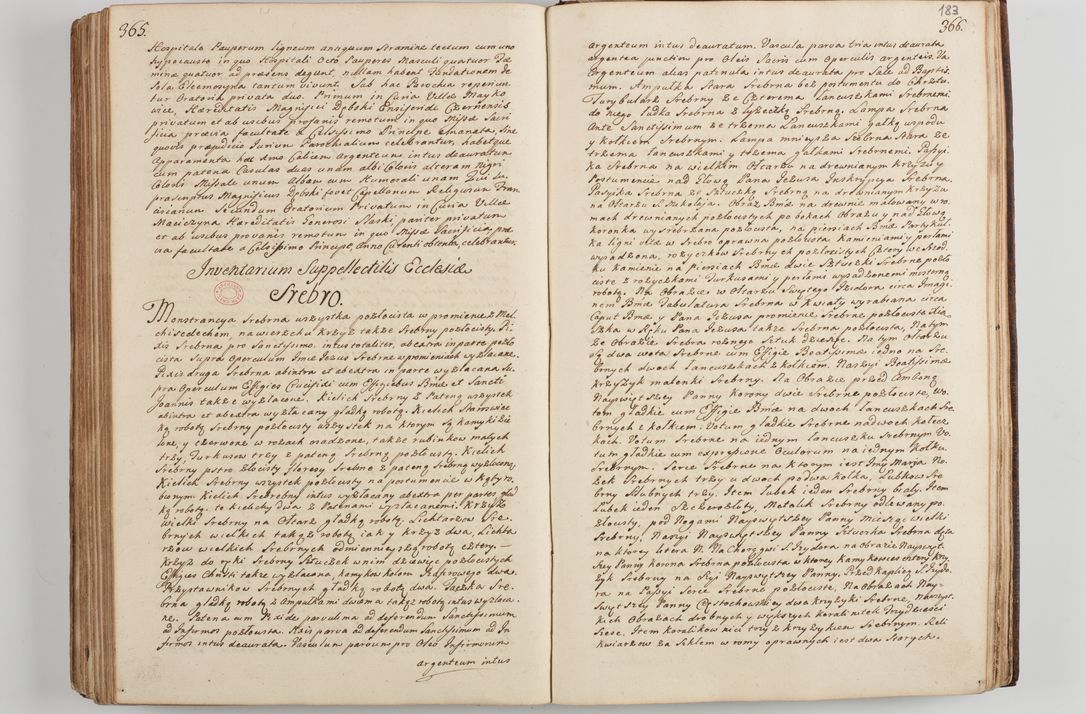 365.
Hospitale Pauperum ligneum antiquum Stramine tectum cum uno
hypocausto in quo Hospitali Octo Pauperes Masculi quatuor Fæ
minæ quatuor ad præsens degunt, nullam habent Fundationem de
Sola Eleemosyna tantum vivunt. Sub hac Parochia reperiun
tur Oratoria privata duo. Primum in Curia Villæ Mayko
wice, Hæreditatis Magnifici Dębski Ensiferidæ
privatum et ab usibus profanis remotum in quo Missæ Sacri
ficia prævia facultate a Celsissimo Principe emanata, sine
quovis præjudicio Jurium Parochialium celebrantur, habetque
Apparamenta hæc Imo Calicem Argenteum intus deauratum
cum patena Casulas duas unam albi Coloris alteram Nigri
Coloris Missale unum Albam cum Humerali unam
præscriptus Magnificus Dębski fovet Capellanum Religiosum Fran
ciscanum. Secundum Oratorium Privatum in Curia Villæ
Maciczyna Hæreditatis Generosi Płaski pariter privatum
et ab usibus prophanis remotum in quo Missæ Sacrificia, præ
via facultate a Celsissimo Principe, Anno Currenti obtenta, celebrantur.
Inventarium Suppellectilis Ecclesiæ
Srebro.
Monstrancya Srebrna wszystka pozłocista w promienie z Mel
chisedechem, na wierzchu krzyż także Srebrny pozłocisty. Pi
xis Srebrna pro Sanctissimo, intus totaliter, ab extra in parte pozło
cista Supra Operculum Imię Jezus Srebrne w promieniach wyzłacane.
Pixis druga Srebrna abintra et abextra in parte wyzłacana Su
pra Operculum Effigies Crucifixi cum Effigiebus Bmæ et Sancti
Joannis także wyzłacone. Kielich Srebrny z Pateną wszystek
abintra et abextra wyzłacany gładką robotą. Kielich Staroswiec
ką robotą Srebrny pozłocisty wszystek na ktorym są kamyki zie
lone, y czerwone w rożach osadzone, także rubinkow małych
trzy, Turkusow trzy z pateną Srebrną pozłocistą. Kielich
Srebrny pstro złocisty floresy Srebrne z pateną Srebrną wyzłoconą,
Kielich Srebrny wszystek pozłocisty na postumencie w kąty ro
bionym. Kielich Srebrny intus wyzłacany abextra per partes gład
ką robotą. te kielichy dwa z Patenami wyzłacanemi. Krzyż
wielki Srebrny na Ołtarz gładką robotą. Lichtarzow Sre
brnych wielkich takąż robotą iak y krzyż dwa, Lichta
rzow wielkich Srebrnych odmiennieyszą robotą cztery.
Krzyż do ręki Srebrny Sztuczek w nim dziewięc pozłocistych
Effigies Christi także wyzłacana, kamykow kołem Szafirowego dwa.
Przystawnikow Srebrnych gładką robotą dwa. Taczka Sre
brna gładką robotą z Ampułkami dwoma takąż robotą intus wyzłaca
ne. Patena cum Naide parvulina ad deferendum Sanctissimum
ad Infirmos pozłocista. Nais parva ad deferendum Sanctissimum ad In
firmos intus deaurata. Vasculum parvum pro Oleo Infirmorum
argenteum intus
183
366.
argenteum intus deauratum. Vascula parva tria intus deaurata
argentea junctim pro Oleis Sacris cum Operculis argenteis. Va
Argenteum alias patinula intus deaurata pro Sale ad Baptis
mum. Ampułka Stara Srebrna bez postumentu do Chrztu.
Turybularz Srebrny ze Czterema Łancuszkami Srebrnemi
do niego Łudka Srebrna z Łyżeczką Srebrną. Lampa Srebrna
Ante Sanctissimum ze trzema Łancuszkami gałką u spodu
y kołkiem Srebrnym. Lampa mnieysza Srebrna Stara ze
trzema Łancuszkami y trzema gałkami Srebrnemi. Passyi
ka Srebrna na wielkim Ołtarzu na drewnianym krzyżu y
Postumencie nad Głową Pana Jezusa Inskrypcya Srebrna.
Passyika Srebrna ze Sztuczką Srebrną na drewnianym krzyżu
na Ołtarzu S. Mikołaja. Obraz Bmæ na drewnie malowany w ra
mach drewnianych pozłocistych po bokach Obrazu y nad Głową
koronka wysrebrzana pozłocista, na piersiach Bmæ Partykuł
ka ligni vitæ w Srebro oprawna pozłocista kamieniami y perłami
wysadzona, rożyczkow Srebrnych pozłocistych cztery we Srod
ku kamienie na piersiach Bmæ dwie Sztuczki Srebrne pozło
ciste z rożyczkami Turkusami y perłami wysadzonemi misterną
robotą. Na Obrazie w Ołtarzu Swiętego Izidora circa Imagi
nem Bmæ Tabulatura Srebrna w kwiaty wyrabiana circa
Caput Bmæ y Pana Jezusa promienie Srebrne pozłociste
szka w Ręku Pana Jezusa także Srebrna pozłocista, Na tym
że Obrazie Srebra rożnego Sztuk dziesięc. Na tym Ołtarzu
Są dwa wota Srebrne cum Effigie Beatissimæ iedno na Sre
brnych dwoch Łancuszkach z kołkiem. Na szyi Beatissimæ
krzyżyk malenki Srebrny. Na Obrazie przed Amboną
Nayswiętszey Panny Korony dwie Srebrne pozłociste, wo
tum gładkie cum Effigie Bmæ na dwoch Łancuszkach Sre
brnych z kołkiem. Votum gładkie Srebrne na dwoch kołecz
kach. Votum Srebrne na iednym Łancuszku Srebrnym Vo
tum gładkie cum expressione Oculorum na iednym kołku
Srebrnym. Serce Srebrne na ktorym iest Imię Marya No
żek Srebrnych trzy u dwoch podwa kołka, Lubkow Sre
brny Slubnych trzy. Item Lubek ieden Srebrny biały. Item
Lubek ieden Szczerozłoty, Metalik Srebrny odlewany po
złocisty, pod Nogami Nayswiętszey Panny Miesiąc wielki
Srebrny, Na szyi Nayswiętszey Panny Literka Srebrna
na ktorey litera N. Na Chorągwi S. Izydora na Obrazie Nayswięt
szey Panny korona Srebrna pozłocista w ktorey Kamykow czworo
żyk Srebrny na Szyi Nayswiętszey Panny. Przed kaplicą S. Izydo
ra na Passyi Serce Srebrne pozłociste, Na Obrazach Nay
swiętszey Panny Częstochowskiey dwa krzyżyki Srebrne, Na wszyst
kich Obrazach drobnych y większych koralinitek Trzydziesci
Szesc. Item koralikow nici trzy z krzyżykiem Srebrnym. Reli
kwiarzow za Szkłem w romy oprawnych iest dwa Starych.